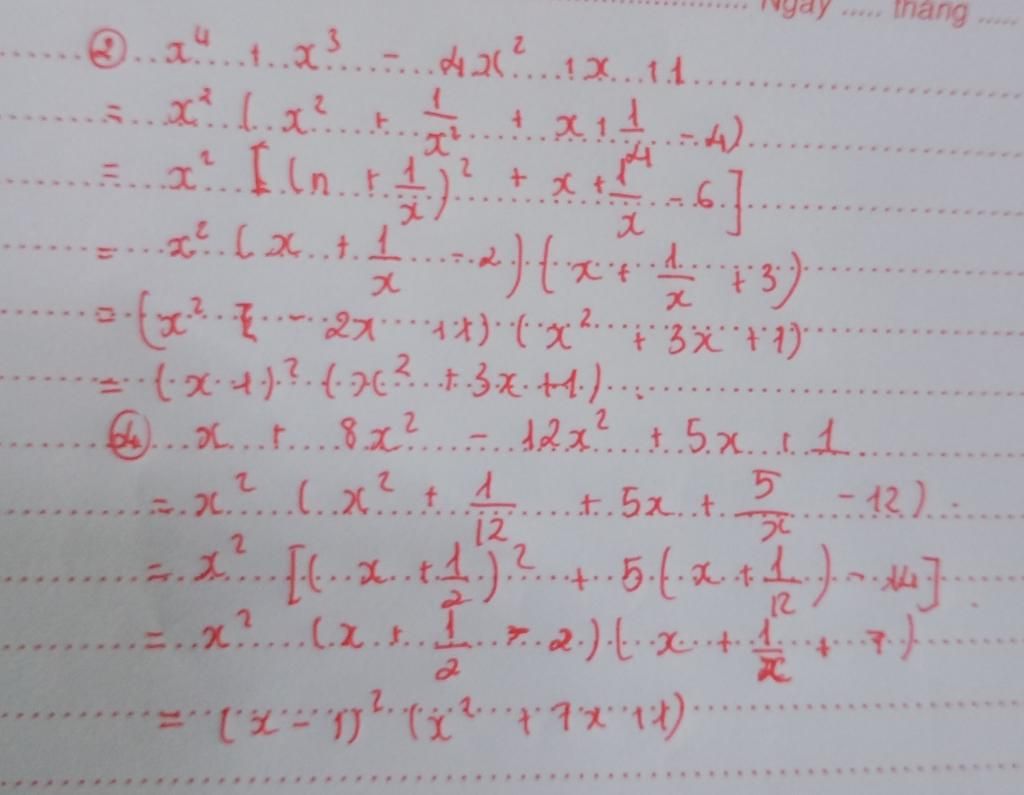 Ngày ..... tháng .....
② x⁴ + x³ - 4x² + x + 1
= x² ( x² + 1/x² + x + 1/4 - 4)
= x² [ (n + 1/x)² + x + 1/x - 6 ]
= x² ( x + 1/x - 2 ) ( x + 1/x + 3 )
= ( x² - 2x + 1 ) ( x² + 3x + 1 )
= ( x - 1 )² ( x² + 3x + 1 )
④ x + 8x² - 12x² + 5x + 1
= x² ( x² + 1/12 + 5x + 5/x - 12 )
= x² [ ( x + 1/2 )² + 5 ( x + 1/12 ) - 14 ]
= x² ( x + 1/2 - 2 ) ( x + 1/x + 7 )
= ( x - 1 )² ( x² + 7x + 1 )